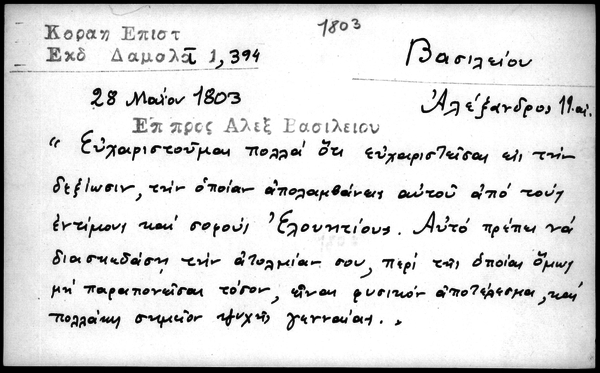 Κοραη Επιστ
Εκδ Δαμαλᾶ 1,394
1803
Βασιλείου
28 Μαΐου 1803
Ἀλέξανδρος
Επ προς Αλεξ Βασιλειου
" Εὐχαριστοῦμαι πολλά ὅτι εὐχαριστεῖσαι εἰς τὴν
δεξίωσιν, τὴν ὁποίαν ἀπολαμβάνεις αὐτοῦ ἀπό τούς
ἐντίμους καί σοφούς Ἑλουητίους. Αὐτό πρέπει νά
διασκεδάσῃ τὴν ἀτολμίαν σου, περί τῆς ὁποίας ὅμως
μή παραπονεῖσαι τόσον, εἶναι φυσικόν ἀποτέλεσμα, καί
πολλάκις σημεῖον ψυχῆς γενναίας. "